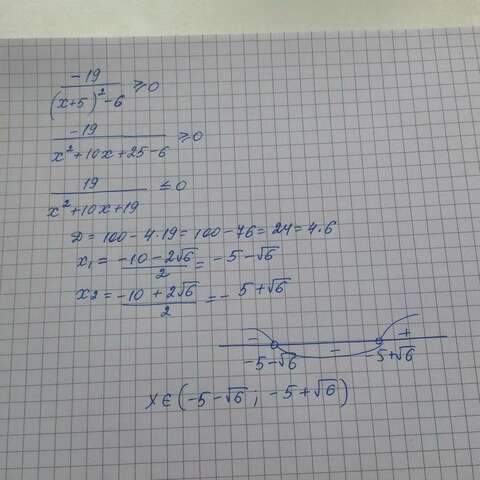 -19/((x+5)²-6) ≥ 0
-19/(x²+10x+25-6) ≥ 0
19/(x²+10x+19) ≤ 0
D = 100 - 4·19 = 100 - 76 = 24 = 4·6
x₁ = (-10-2√6)/2 = -5-√6
x₂ = (-10+2√6)/2 = -5+√6
- - +
-5-√6 -5+√6
x ∈ (-5-√6 ; -5+√6)